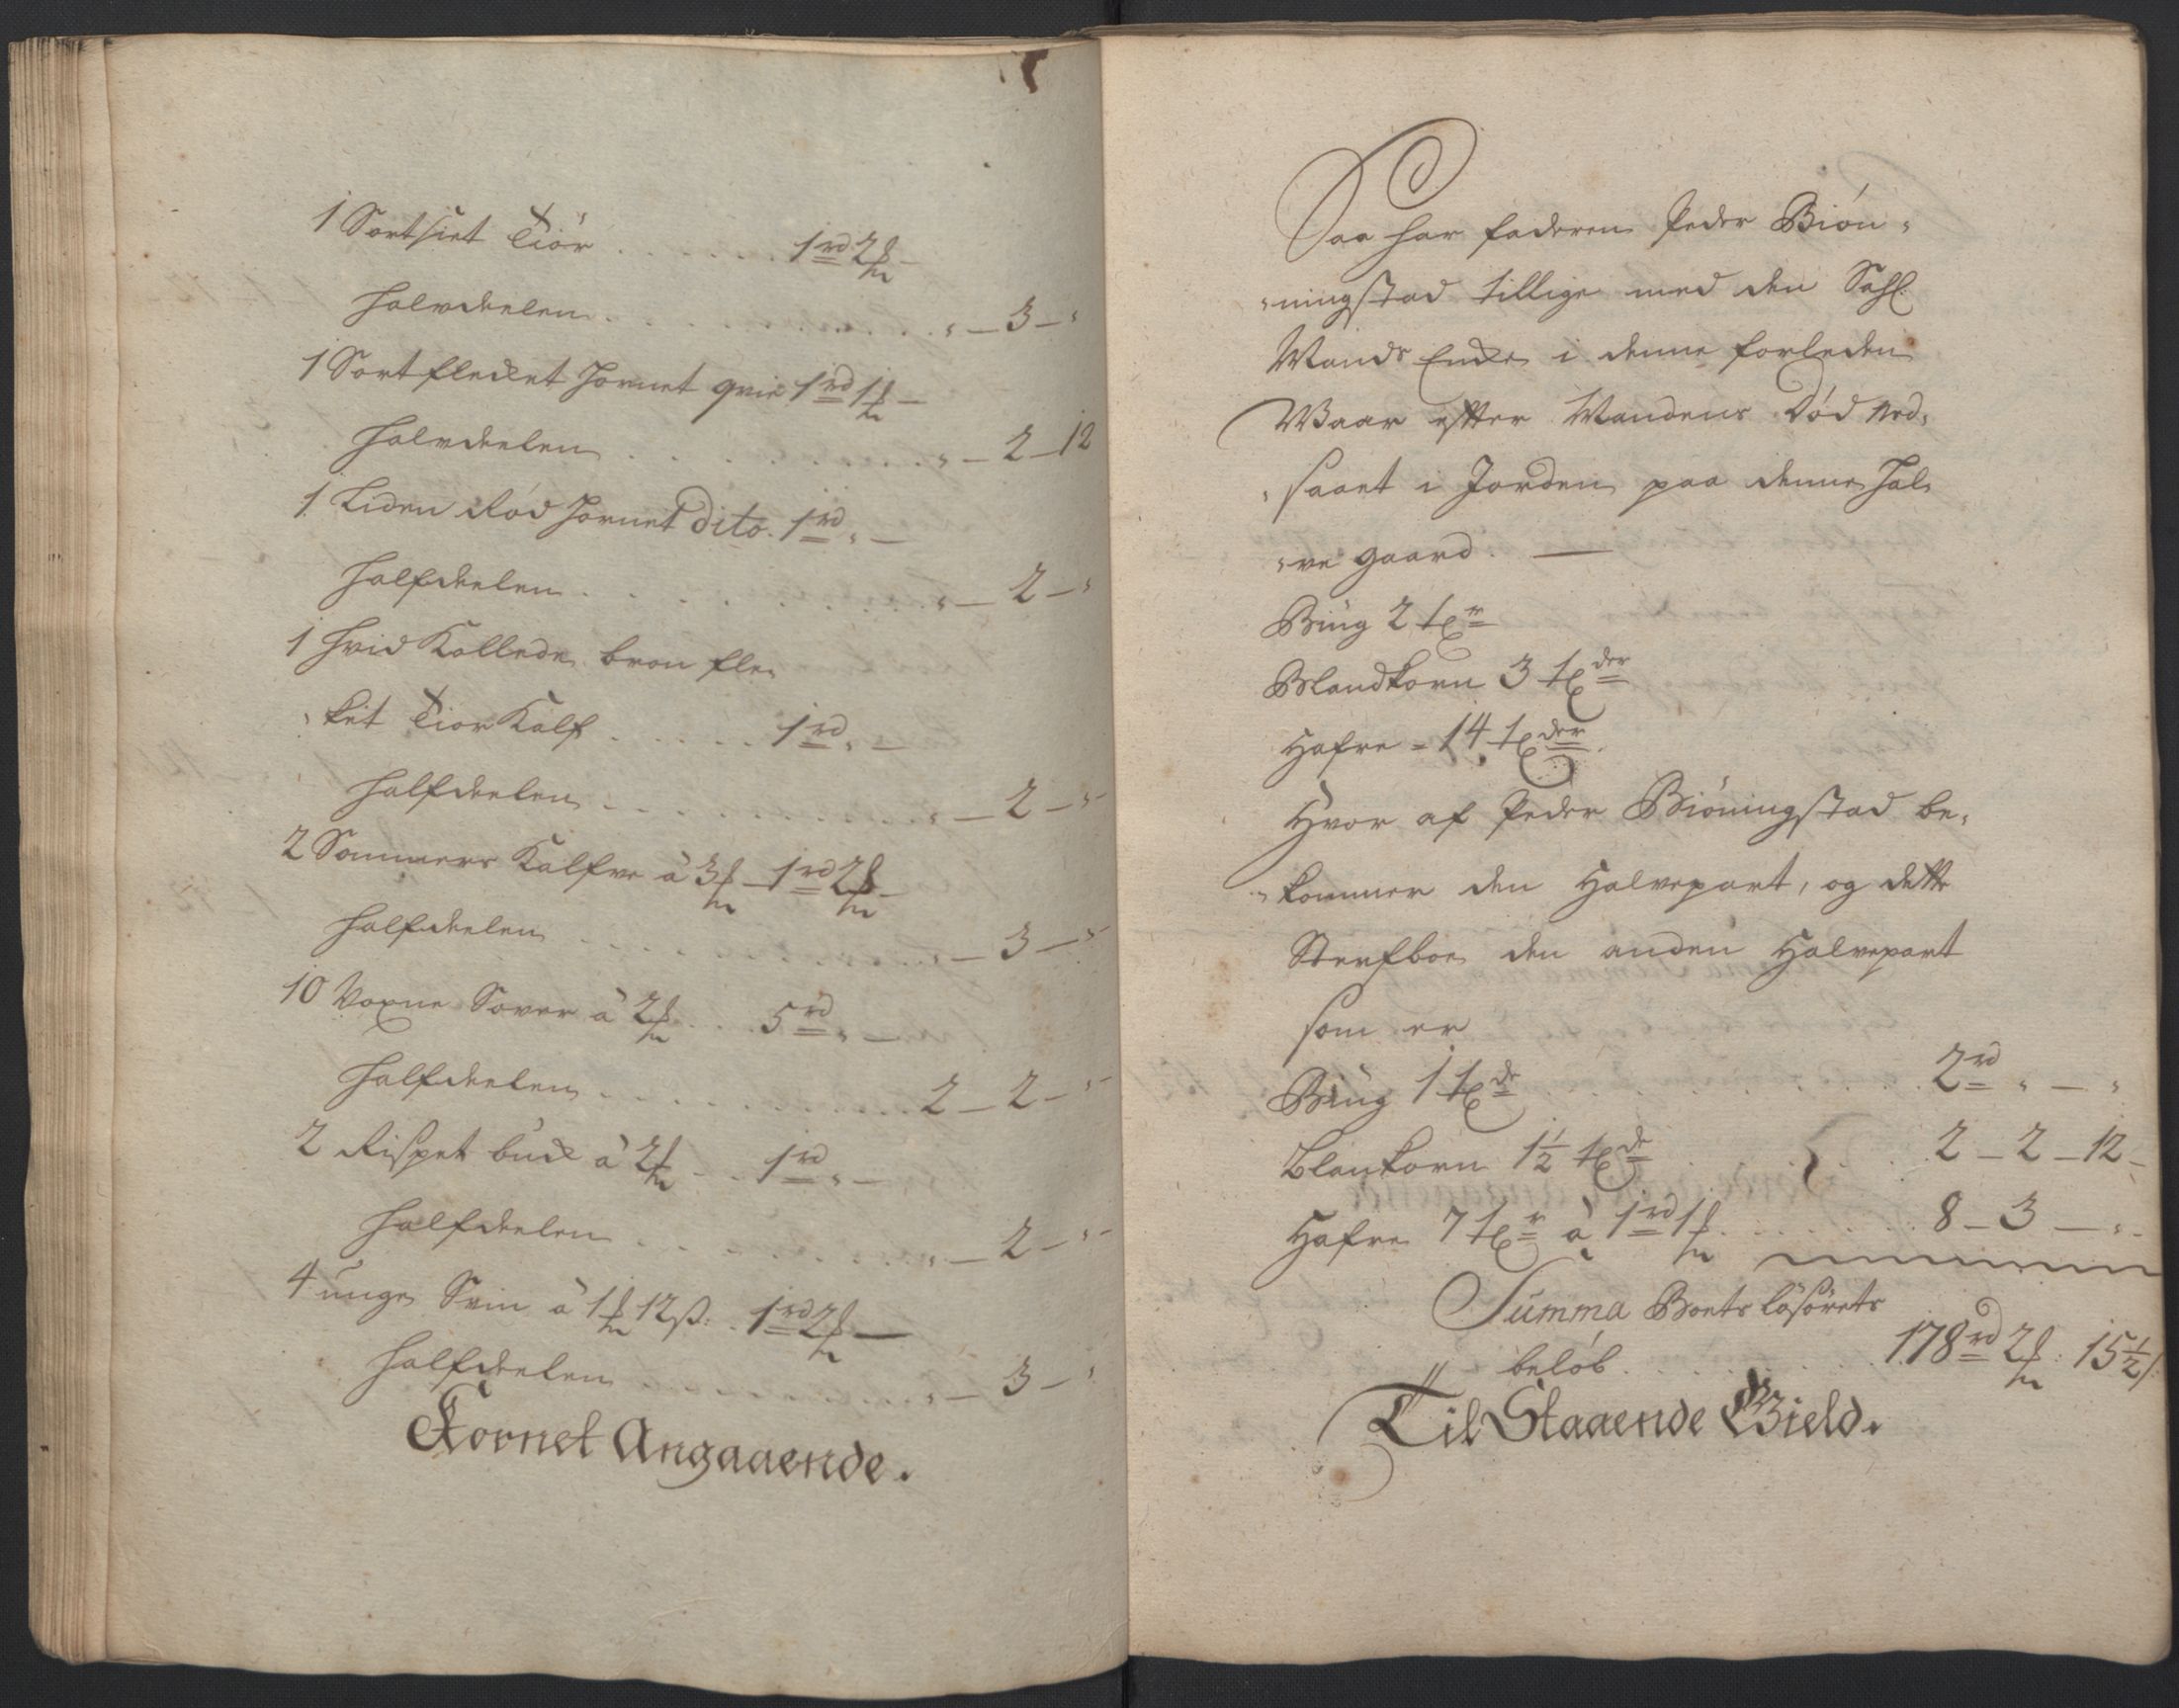 1 Sortsiet Tiör . . . . . . 1 rd 2 ₰ —
Halvdeelen . . . . . . . . „ — 3 — „
1 Sort flecket Hornet qvie 1 rd 1 ₰ —
Halvdeelen . . . . . . . . „ — 2 — 12
1 Liden Rød Hornet Dito . 1 rd „ —
Halfdeelen . . . . . . . . „ — 2 — „
1 Hvid Kollede bron fle„
„ket Tior Kalf . . . . . 1 rd „ —
Halfdeelen . . . . . . . . „ — 2 — „
2 Sommers Kalfve à 3 ₰ — 1 rd 2 ₰ —
Halfdeelen . . . . . . . . „ — 3 — „
10 Voxne Sover à 2 ₰ . . 5 rd „ —
Halfdeelen . . . . . . . . 2 — 2 — „
2 Rispet buck à 2 ₰ . . 1 rd „ —
Halfdeelen . . . . . . . . „ — 2 — „
4 unge Svin à 1 ₰ 12 ß . 1 rd 2 ₰ —
Halfdeelen . . . . . . . . „ — 3 — „
Kornet Angaaende.
Saa har faderen Peder Biön„
„ningstad tillige med den Sahl.
Mands Encke i denne forleden
Waar efter Mandens Död ned„
„saaet i Jorden paa denne hal„
„ve gaard. —
Biug 2 tr
Blandkorn 3 tder
Hafre = 14 tder
Hvor af Peder Biöningstad be„
„kommer den Halvepart, og dette
Sterfboe den anden Halvepart
som er
Biug 1 tde . . . . . . 2 rd „ — „
Blankorn 1½ tde . . . . 2 — 2 — 12 —
Hafre 7 tr à 1 rd 1 ₰ . . . . . 8 — 3 — „
Summa Boets lösörets
belöb . . . . . . 178 rd 2 ₰ : 15½ ß
Til Staaende Gield.